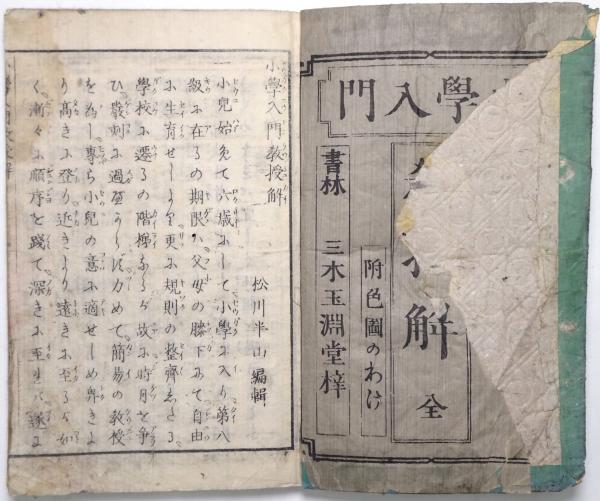 學入門
解 全
附色圖のわけ
書林 三木玉淵堂梓
小學入門教授解
松川半山編輯
一小兒始免て六歳にして小學に入り第八
級に在るの期限ハ父母の膝下にて自由
に生育せしより更に規則の整齊ゑたる
學校に遷るの階梯なるが故に時月を争
ひ嚴刻に過 力めて簡易の教授
を為し專ら小兒の意に適せしめ卑きよ
り髙きに登り近きより遠きに至るが如
く漸々に順序を踐て深きに至れバ遂に